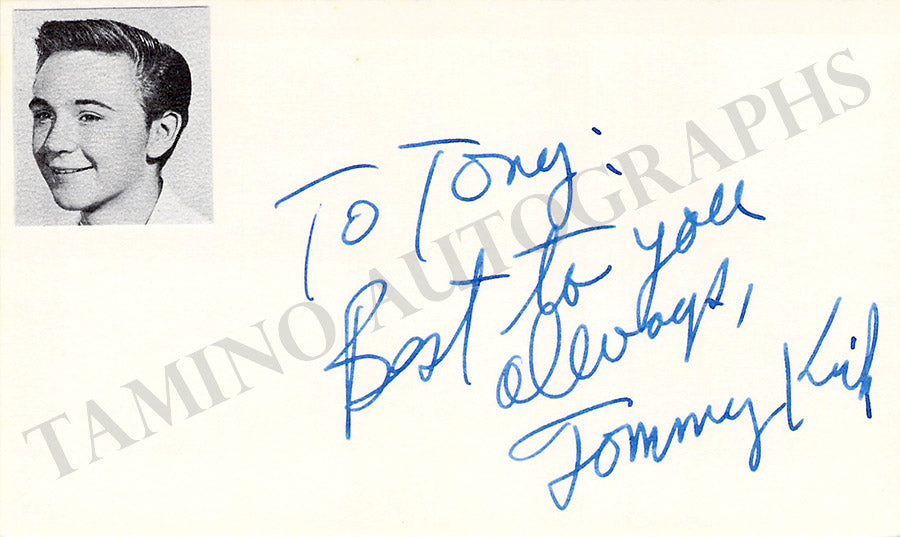 To Tony:
Best to you
always,
Tommy Kirk
TAMINO AUTOGRAPHS